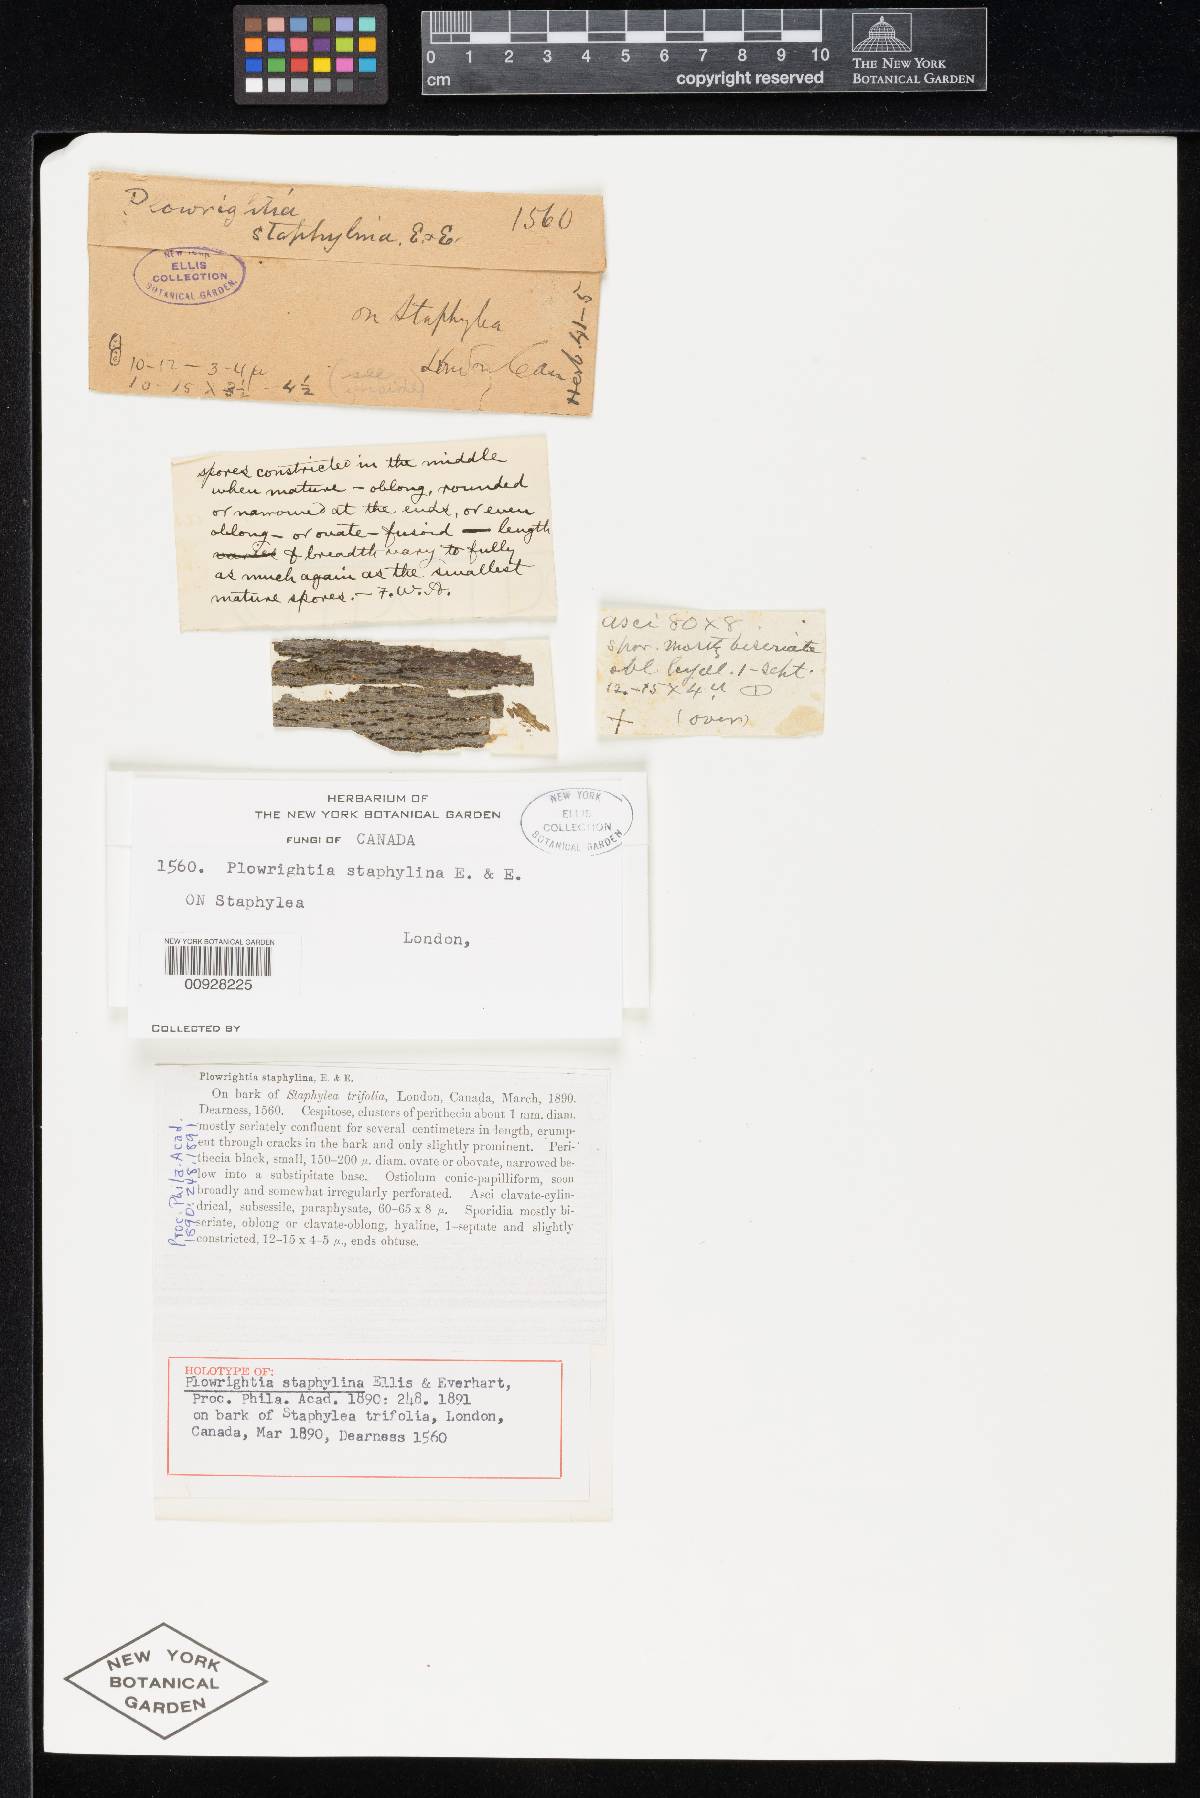 0 1 2 3 4 5 6 7 8 9 10
cm copyright reserved
THE NEW YORK
BOTANICAL GARDEN
Plowrightia
staphylina, E. & E. 1560
NEW YORK
ELLIS
COLLECTION
BOTANICAL GARDEN.
on Staphylea
London Can
Herb. 41-5
10-12 — 3-4µ
10-15 X 3½ - 4½ (see
inside)
spores constricted in the middle
when mature — oblong, rounded
or narrowed at the ends, or even
oblong- or ovate-fusoid — length
varies & breadth vary to fully
as much again as the smallest
mature spores. — F. W. A.
asci 80 X 8
spor. mostly biseriate
obl hyal. 1-sept.
12-15 X 4 µ
+ (over)
HERBARIUM OF
THE NEW YORK BOTANICAL GARDEN
FUNGI OF CANADA
NEW YORK
ELLIS
COLLECTION
BOTANICAL GARDEN
1560. Plowrightia staphylina E. & E.
ON Staphylea
London,
NEW YORK BOTANICAL GARDEN
00928225
COLLECTED BY
Plowrightia staphylina, E. & E.
On bark of Staphylea trifolia, London, Canada, March, 1890.
Dearness, 1560. Cespitose, clusters of perithecia about 1 mm. diam.
mostly seriately confluent for several centimeters in length, erump-
ent through cracks in the bark and only slightly prominent. Peri-
thecia black, small, 150–200 µ. diam. ovate or obovate, narrowed be-
low into a substipitate base. Ostiolum conic-papilliform, soon
broadly and somewhat irregularly perforated. Asci clavate-cylin-
drical, subsessile, paraphysate, 60–65 x 8 µ. Sporidia mostly bi-
seriate, oblong or clavate-oblong, hyaline, 1-septate and slightly
constricted, 12–15 x 4–5 µ., ends obtuse.
Proc. Phila. Acad.
1890: 248. 1891
HOLOTYPE OF:
Plowrightia staphylina Ellis & Everhart,
Proc. Phila. Acad. 1890: 248. 1891
on bark of Staphylea trifolia, London,
Canada, Mar 1890, Dearness 1560
NEW YORK
BOTANICAL
GARDEN